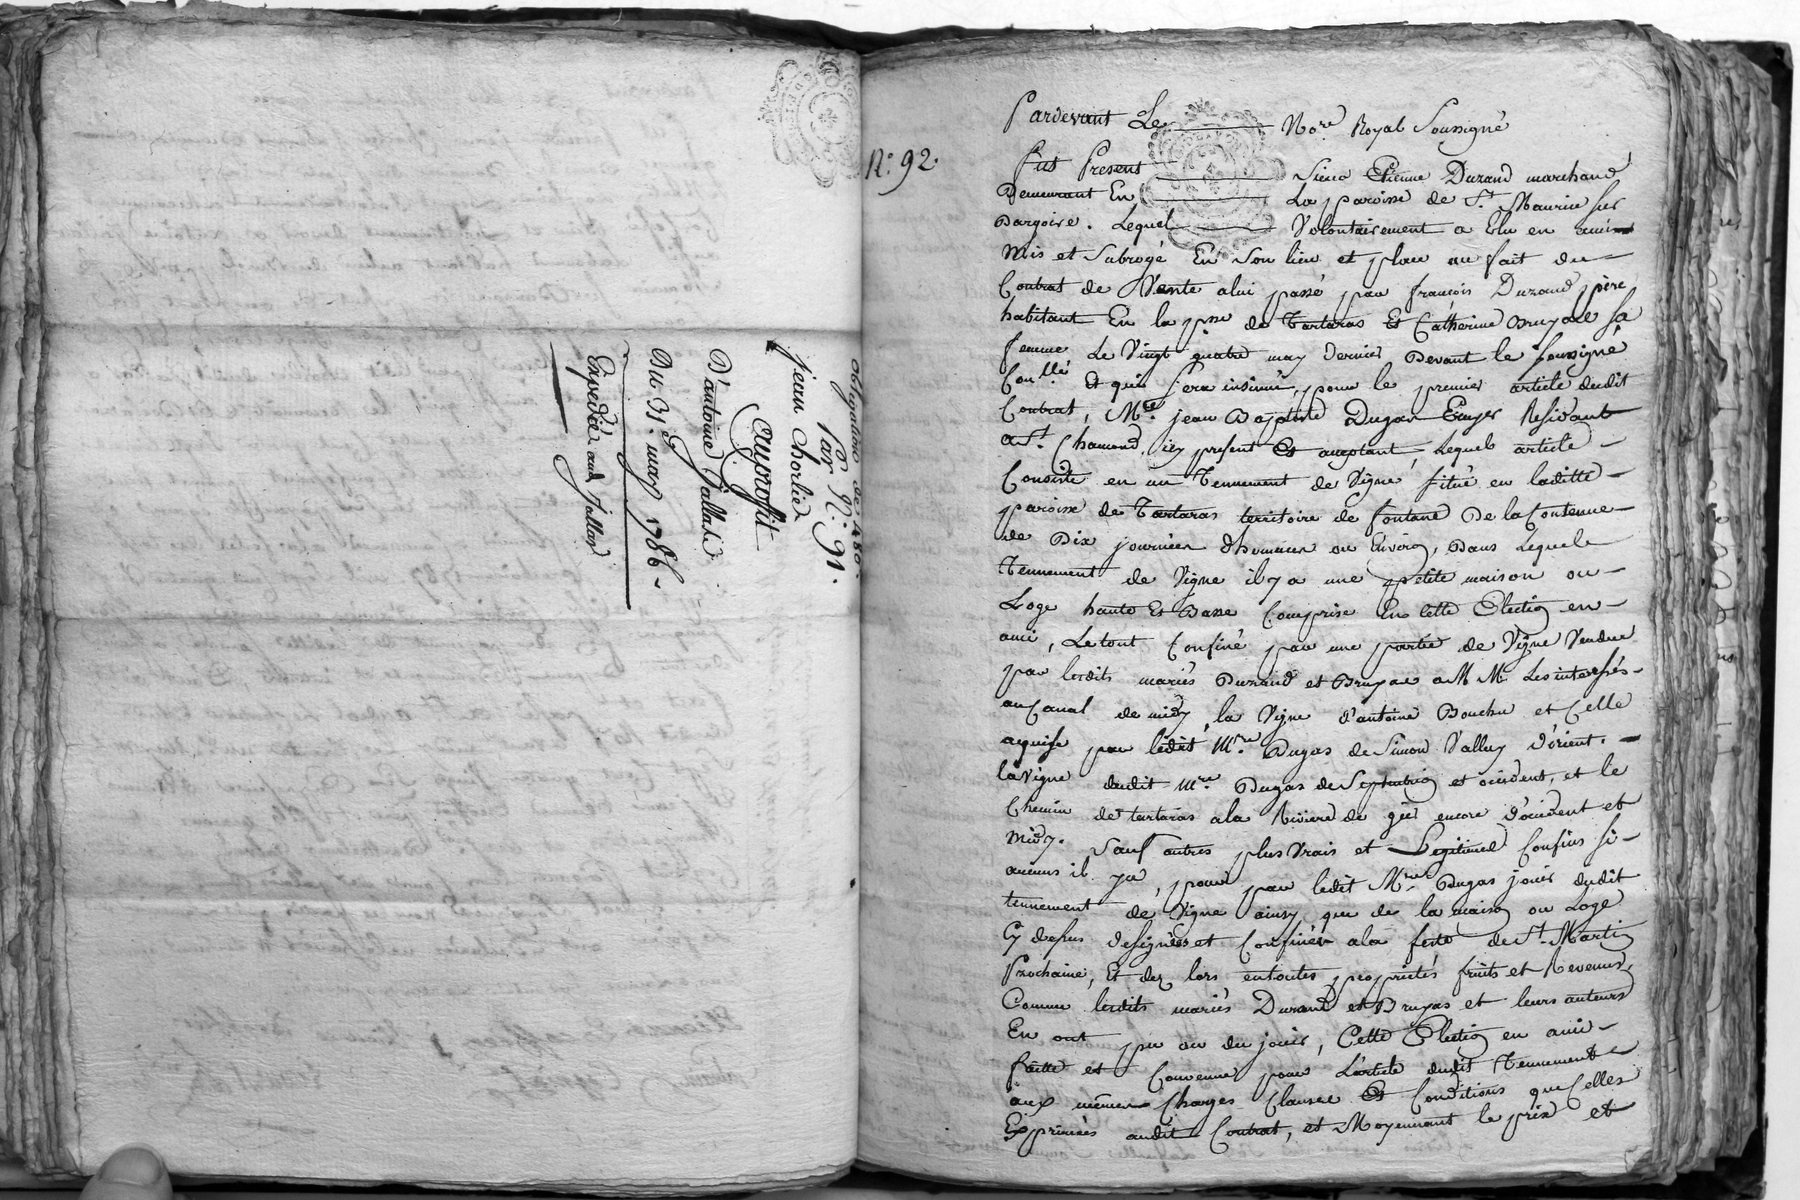 obligation de 480.
Par N.° 91.
jean Chorlier
auprofit
D'antoine Jallade
Du 31.e may 1786.
Expediée aud. Jallad
N.° 92.
Pardevant Le Nore Royal Soussigné
fut Present Sieur Etienne Durand marchand
Demeurant En La paroisse de St. Maurice sur
Dargoire. Lequel Volontairement a Elu en ami
Mis et Subrogé En Son lieu et place au fait du
Contrat de Vente alui passé par françois Durand père
habitant En la psse de Tartaras Et Catherine Bruyas sa
femme Le Vingt quatre may dernier Devant le soussigné
Conllé Et qui sera insinué, pour le premier article dudit
Contrat, Mre. jean Baptiste Dugas Ecuyer Residant
a St. Chamond, icy present Et acceptant, Lequel article
Consiste en un Tennement de Vigne situé en laditte
paroisse de Tartaras territoire de fontane De la fontenne
de Dix journées d'hommes ou Environ, Dans Lequel
Tennement de Vigne il y a une petite maison ou
Loge haute Et Basse Comprise En cette Election en
ami, Le tout Confiné par une partie de Vigne Vendue
par lesdits mariés Durand et Bruyas a M M Les interessés
au Canal de midy, la Vigne d'antoine Bouchu et Celle
aquise par ledit Mre. Dugas de Simon Valluy d'orient.
la Vigne dudit Mre. Dugas de Septentrion et occident, et le
Chemin de tartaras a la Riviere de giés encore d'occident et
midy. Sauf autres plus Vrais et Legitimes Confins si
aucuns il y a, pour par ledit Mre. Dugas jouir dudit
tennement de Vigne ainsy que de la maison ou Loge
Cy dessus designées et Confinés a la feste de St. Martin
Prochaine, Et dez lors en toutes proprietés fruits et Revenus,
Comme lesdits mariés Durand et Bruyas et leurs auteurs
En ont pu ou du jouir, Cette Election en ami
faitte et Convenue pour L'article dudit Tennement
aux mêmes Charges Clauses Et Conditions que Celles
Exprimées audit Contrat, et Moyennant le prix et